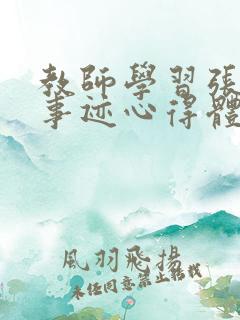 教師學習張
事迹心得體
風羽飛揚
未經同意禁止轉載